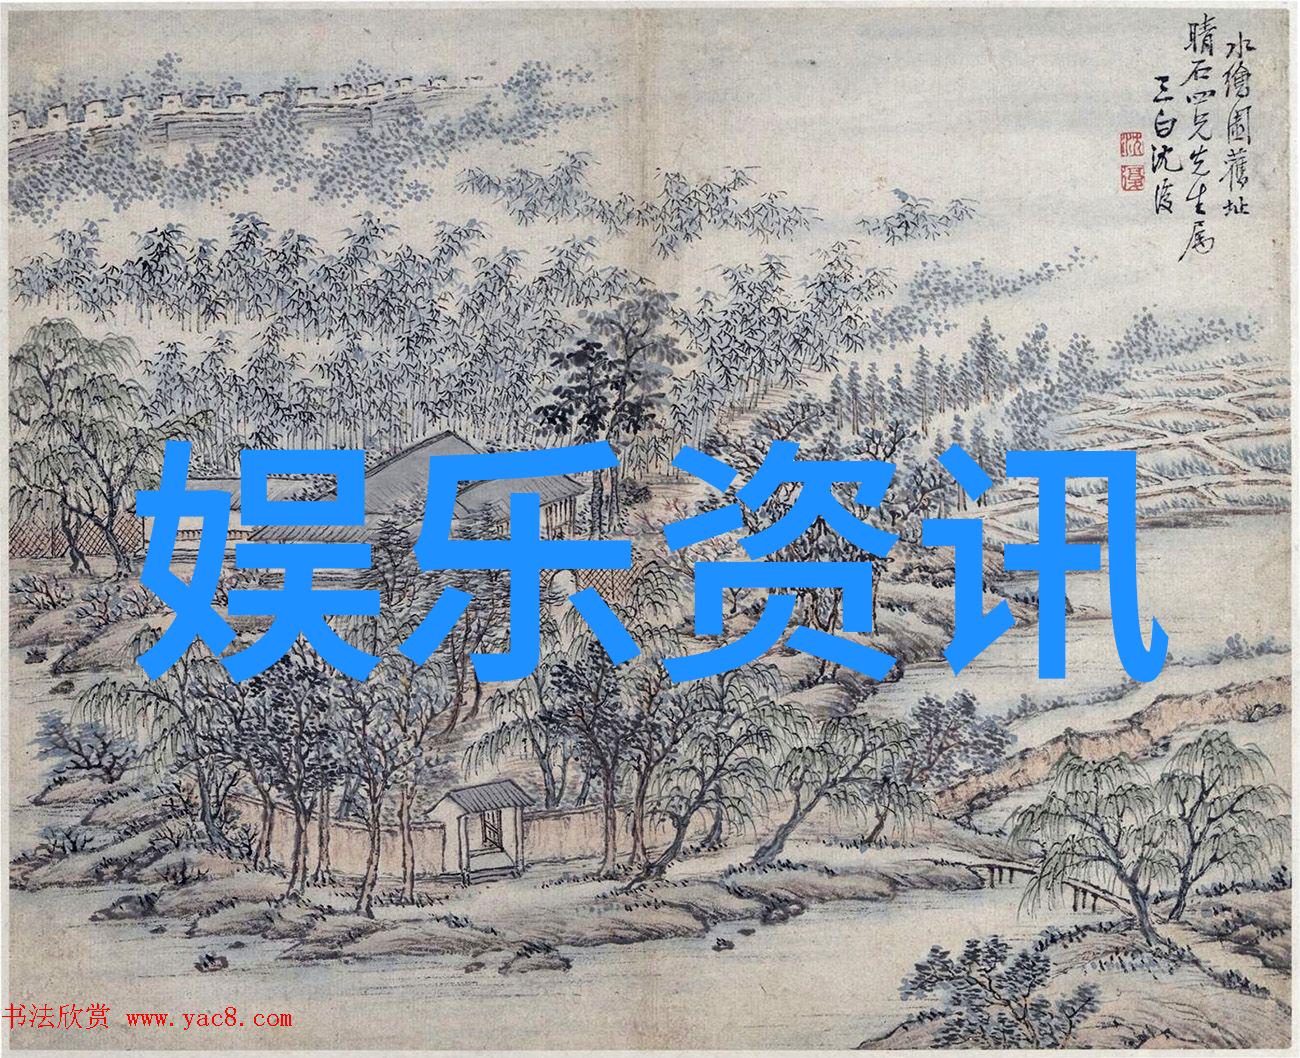 水繪園舊址
晴石四兄先生属
三白沈復
沈
復
娱乐资讯
书法欣赏 www.yac8.com